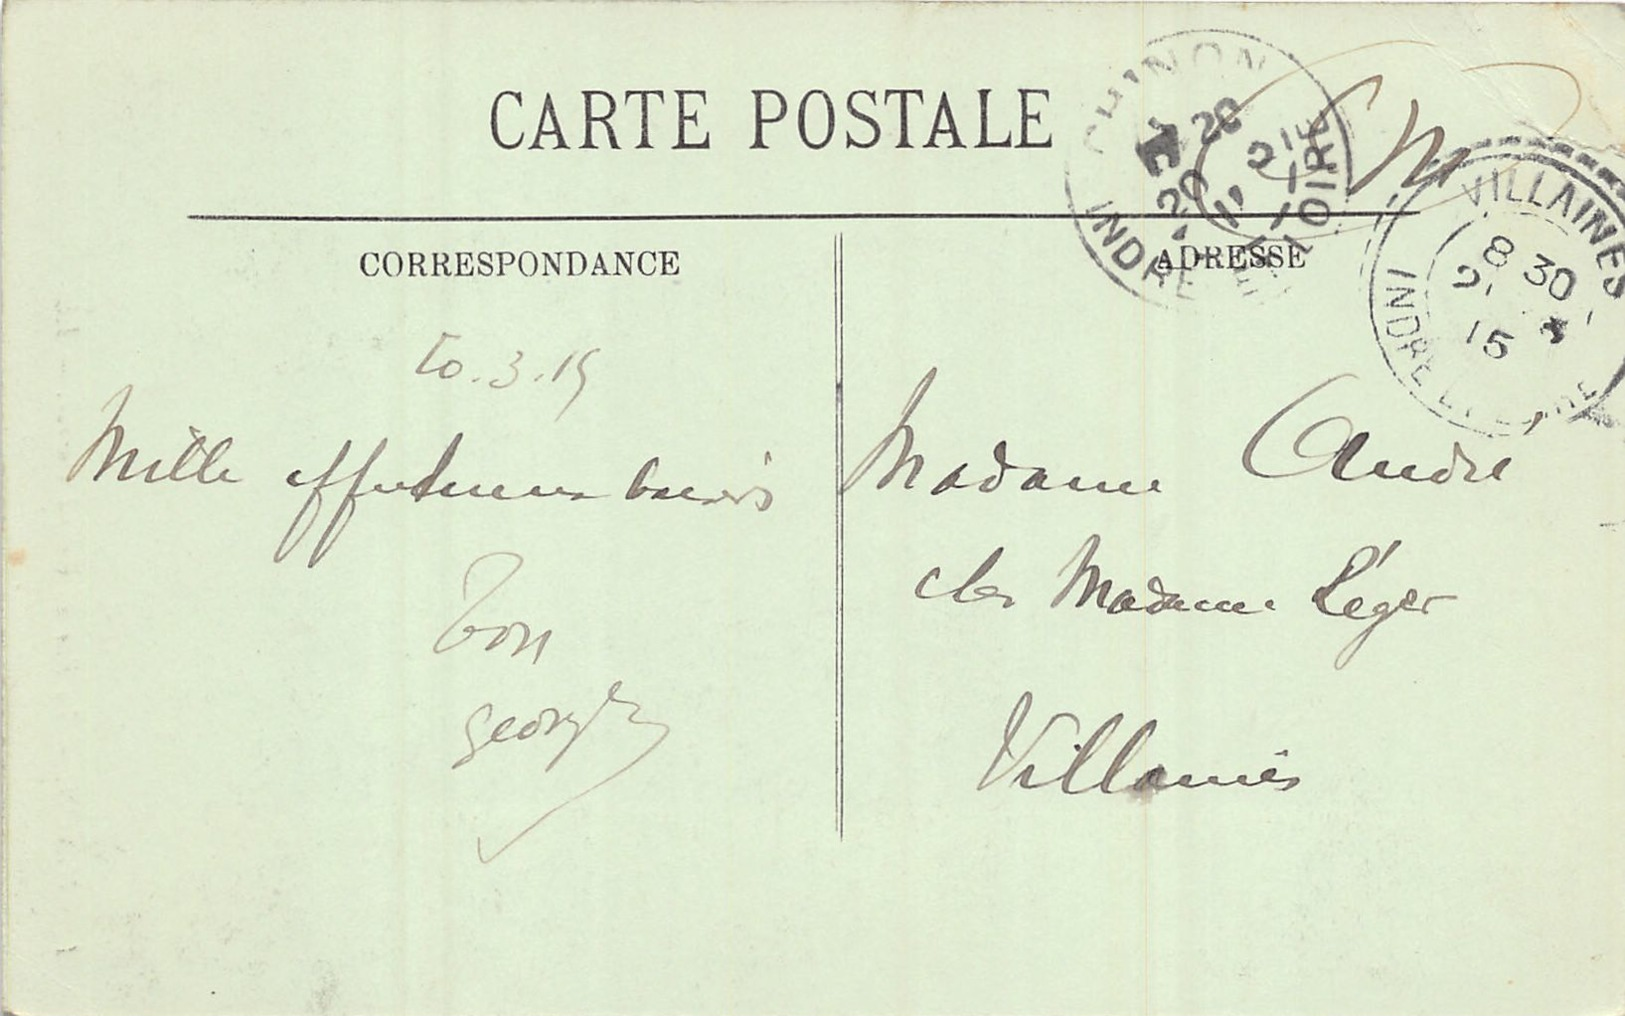 CARTE POSTALE
CORRESPONDANCE
ADRESSE
CHINON
INDRE ET LOIRE
VILLAINES
8 30
15
INDRE ET LOIRE
FM
20.3.15
Mille affectueux baisers
Ton
Georges
Madame André
chez Madame Léger
Villaines